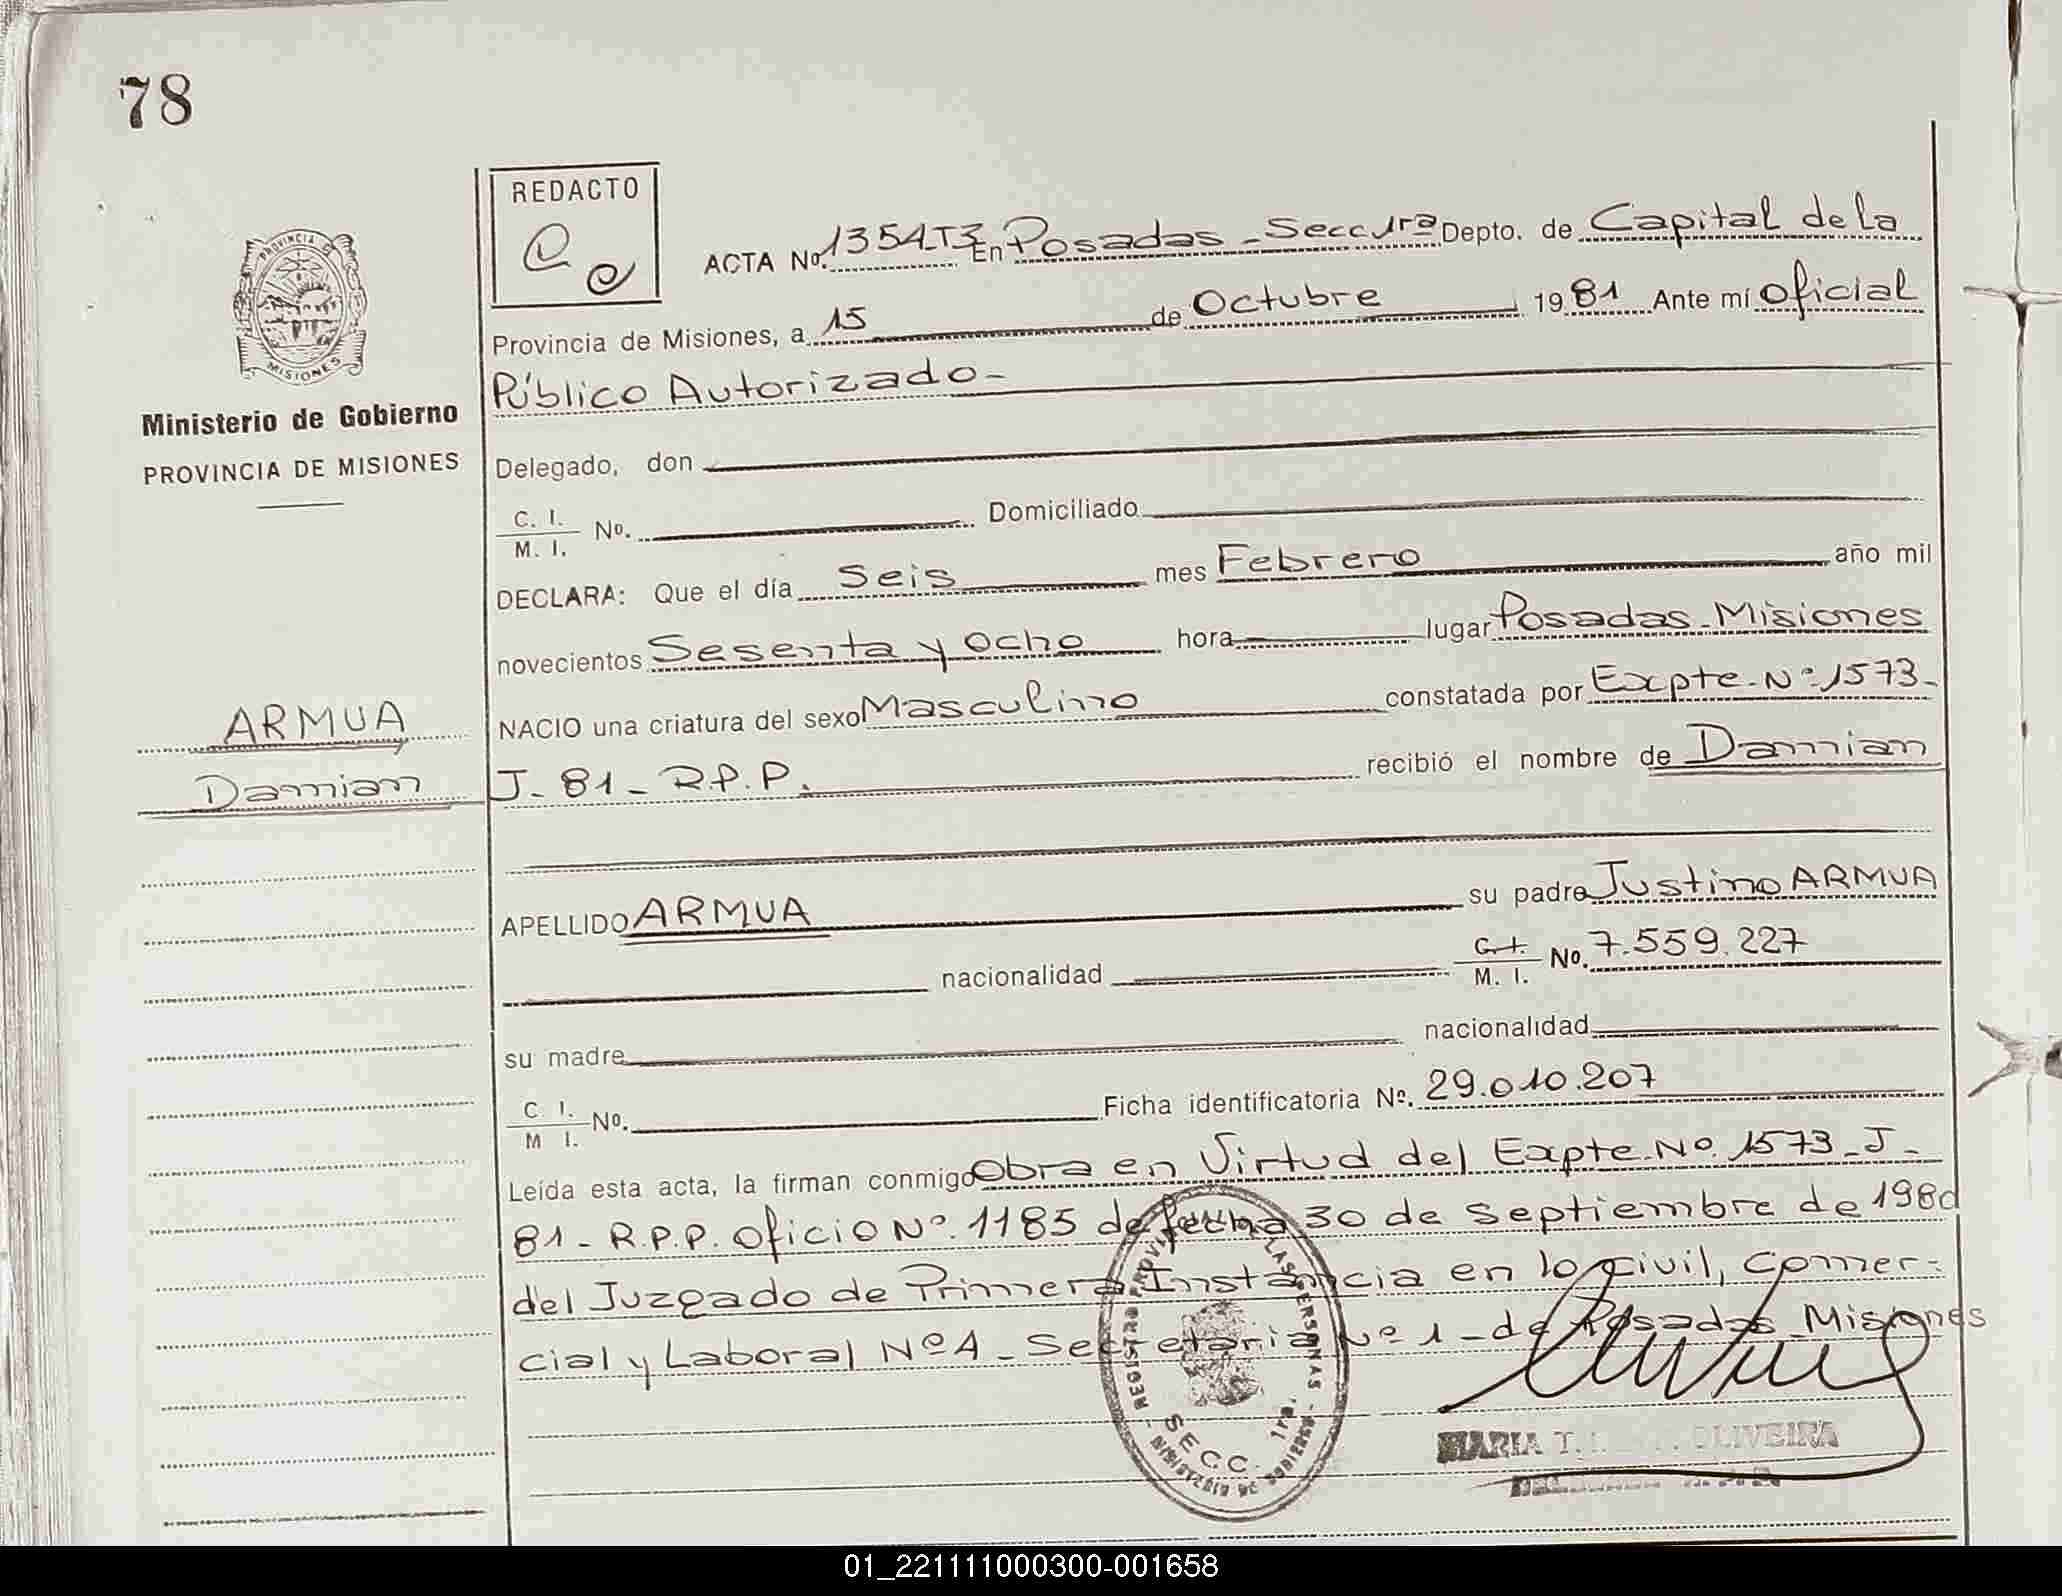 78
REDACTO
ACTA No. 1354 T3 En Posadas - Secc 1ra Depto. de Capital de la
Provincia de Misiones, a 15 de Octubre 1981 Ante mí Oficial
Público Autorizado -
PROVINCIA DE
MISIONES
Ministerio de Gobierno
PROVINCIA DE MISIONES
Delegado, don
C. I. / M. I. No. Domiciliado
DECLARA: Que el día Seis mes Febrero año mil
novecientos Sesenta y Ocho hora lugar Posadas - Misiones
NACIO una criatura del sexo Masculino constatada por Expte. Nº 1573 -
J - 81 - R.P.P. recibió el nombre de Damian
ARMUA
Damian
APELLIDO ARMUA su padre Justino ARMUA
nacionalidad C. I. / M. I. No. 7.559.227
su madre nacionalidad
C. I. / M I. No. Ficha identificatoria Nº. 29.010.207
Leída esta acta, la firman conmigo Obra en Virtud del Expte. Nº. 1573 - J -
81 - R.P.P. Oficio Nº. 1185 de fecha 30 de Septiembre de 198
del Juzgado de Primera Instancia en lo Civil, Comer-
cial y Laboral Nº 4 - Secretaria Nº 1 - de Posadas Misiones
REGISTRO PROVINCIAL LAS PERSONAS
SECC. 1ra.
MARIA T. OLIVEIRA
01_221111000300-001658